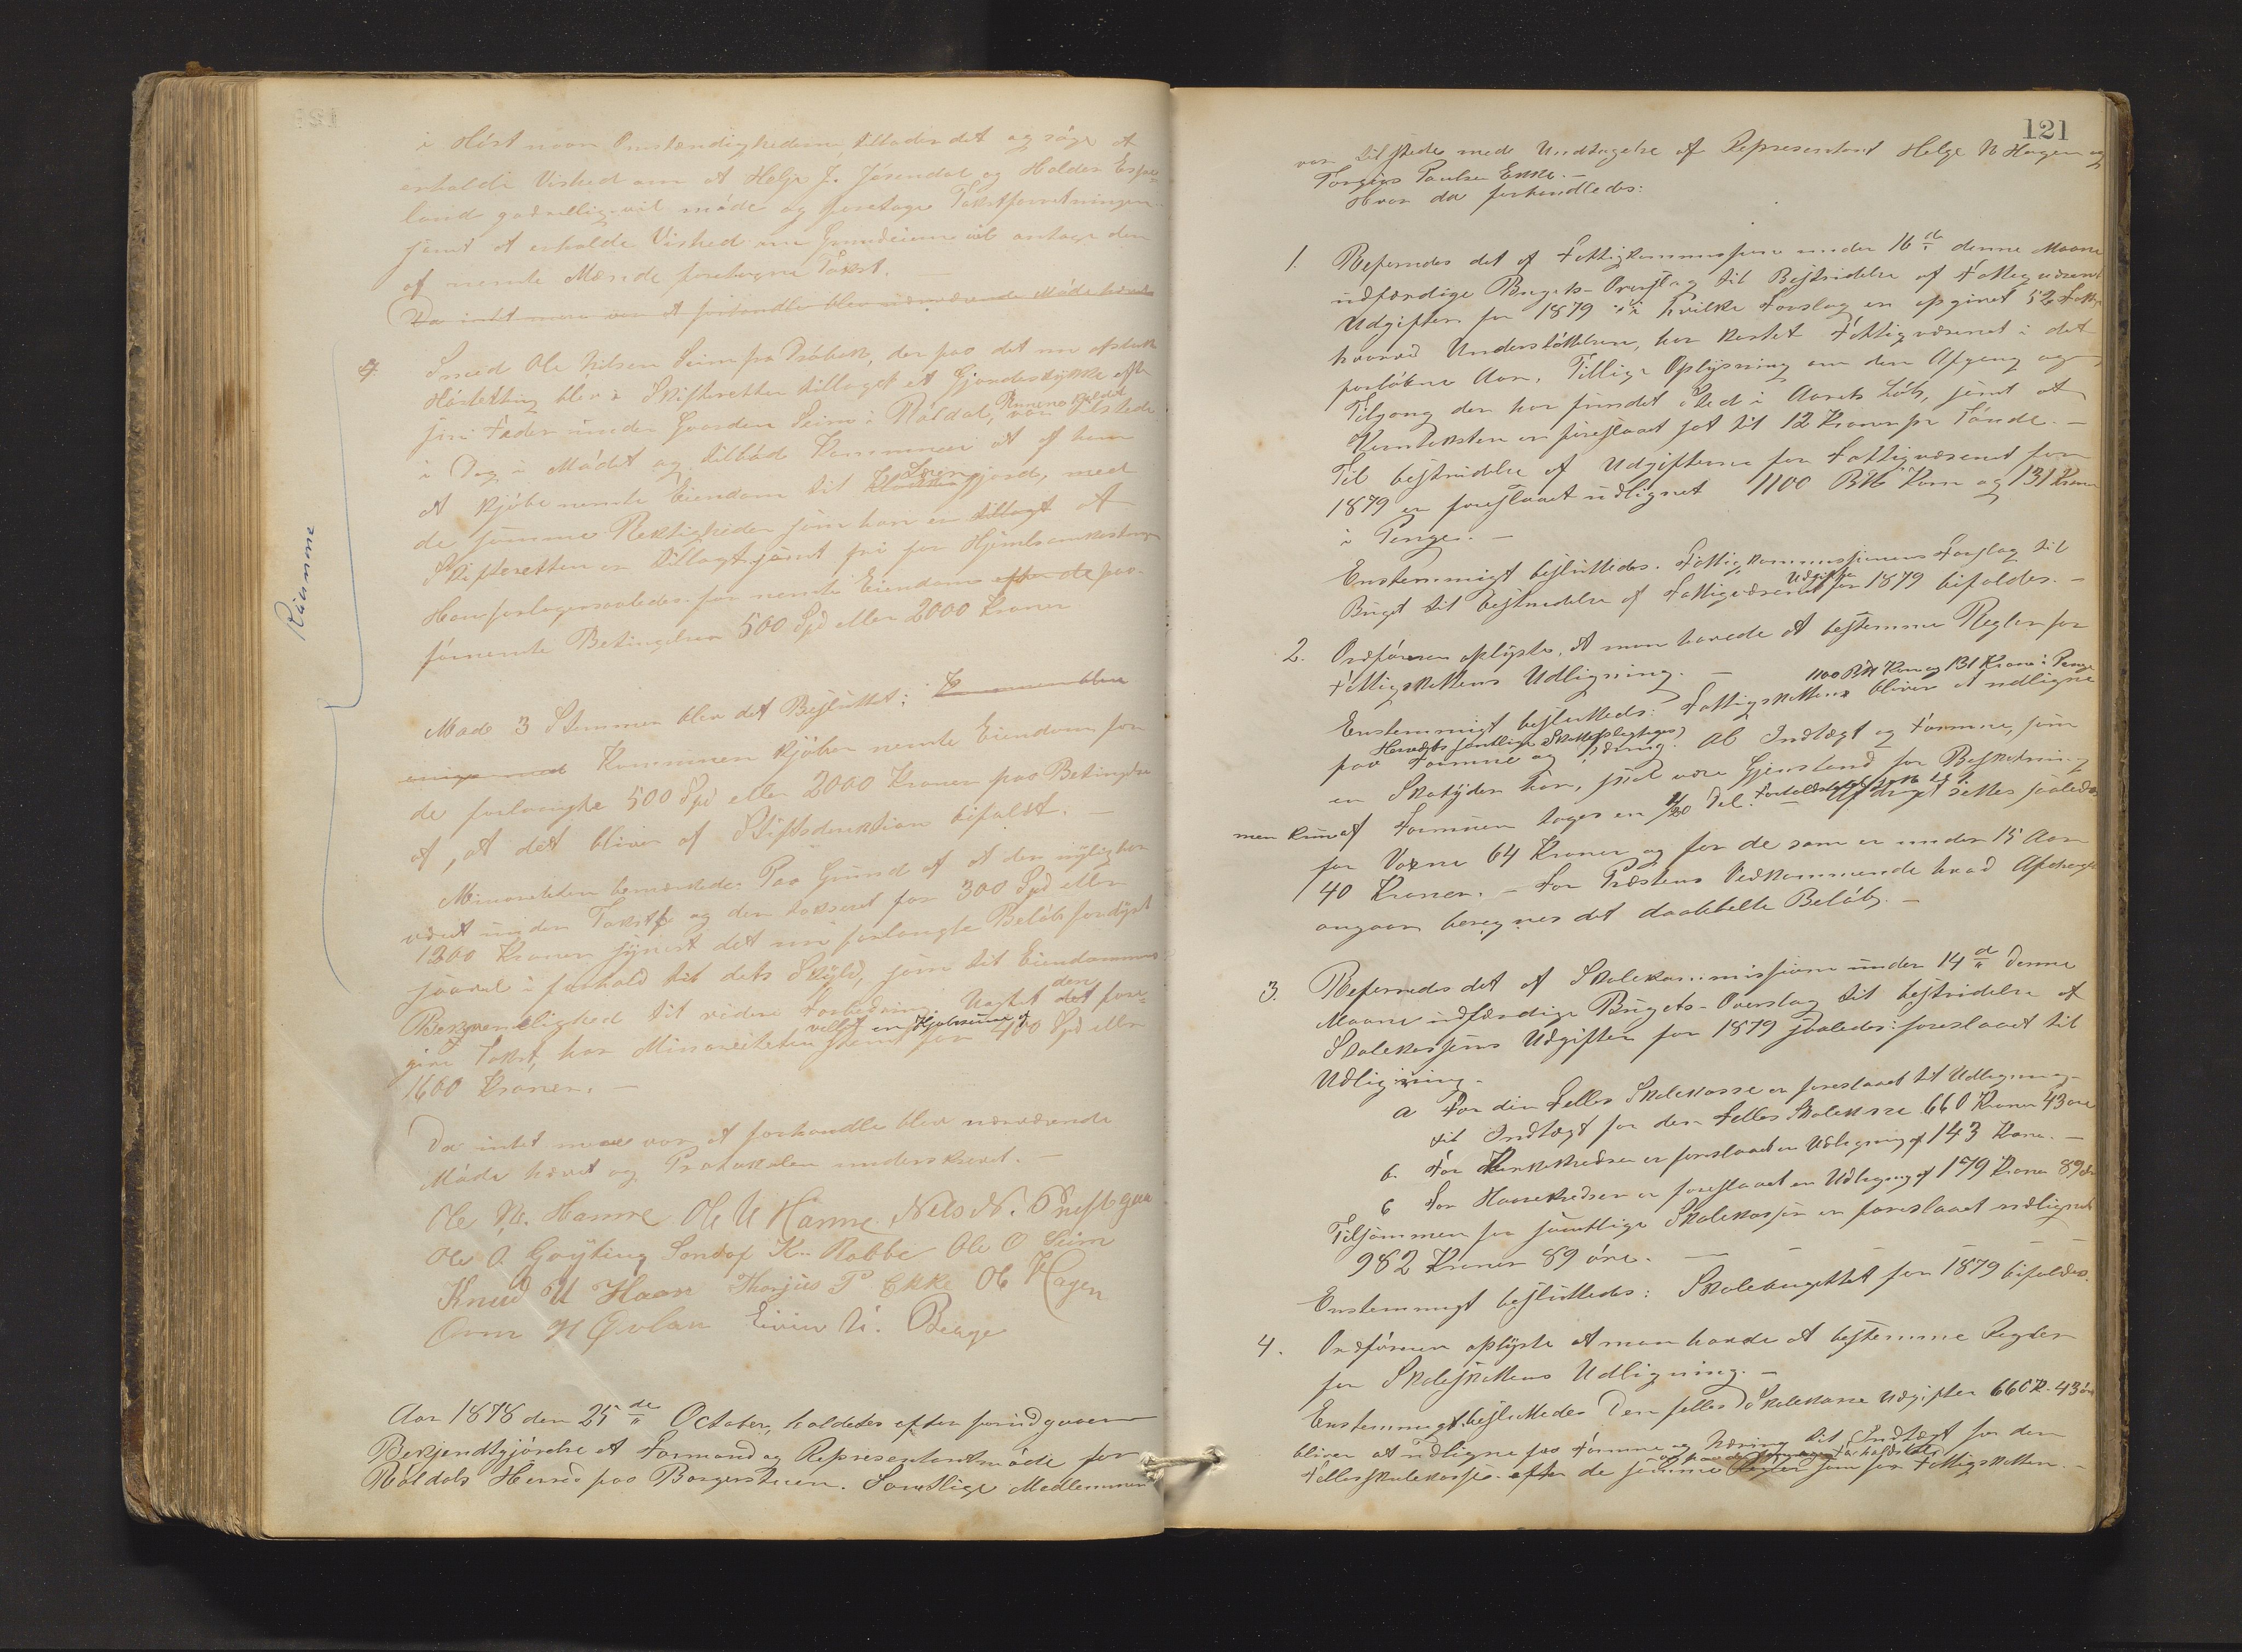 i Höst naar Omstændighederne tillader det og søge at
erholde Vished om at Helje J. Jøsendal og Halder Espe-
land godvillig vil møde og foretage Takstforretningen
samt at erholde Vished om Grundeierne vil antage den
af nemte Mænde foretagne Takst.
Da intet mere var at forhandle blev nærværende Møde hævet
4. Smed Ole Nilsen Seim fra Drøbak, der paa det nu afsluttede
Høstething blev i Skifteretten tillaget et Gjordestykke efter
sin Fader under Gaarden Seim i Røldal, Rinmo kaldet, var tilstede
i Dag i Mødet og tilbød Kommunen at af ham
at kjøbe nemte Eiendom til jord, med
de samme Rettigheder som han er tillagt af
Skifteretten er tillagt samt fri for Hjemlsomkostninger
Han forlanger saaledes for nemte Eiendom efter de paa-
førnemte Betingelser 500 Spd eller 2000 Kroner
Rümme
Mod 3 Stemmer blev det Besluttet: Kommunen blev
enige med Kommunen kjøber nemte Eiendom for
de forlangte 500 Spd eller 2000 Kroner paa Betingelse
af, at det bliver af Stiftsdirektion bifalst. —
Minoriteten bemærkede: Paa Grund af at den nylig har
været under Takst og den takseret for 300 Spd eller
1200 Kroner synest det nu forlangte Beløb for dyrt
saavel i forhold til dets Skyld, som til Eiendommens
Beqvemelighed til videre Forbedring. Uagtet den det fore-
givne Takst, har Minoriteten villet stemt for en Kjøbesum af 400 Spd eller
1600 Kroner. —
Da intet mere var at forhandle blev nærværende
Møde hævet og Protokolen underskrevet. —
Ole N. Hamre Ole U Hamre. Nils N. Prestgaa
Ole O. Gryting Sondof K. Rabbe Ole O Seim
Knud U Haare Thorjus P Ekke Ole Hagen
H Øvland Eivin N. Berge
Aar 1878 den 25de October, holdetes efter forudgaaen
Bekjendtgjørelse et Formand og Representantmøde for
Røldals Herred paa Borgerstuen. Samtlige Medlemmer
121
var tilstede med Undtagelse af Representant Helge N Hagen og
Torgius Paulsen Ekke. —
Hvor da forhandledes:
1. Refererdes det af Fattigkommissionen under 16de denne Maane
udfærdige Bugets-Overslag til Bestridelse af Fattigvæsenets
Udgifter for 1879 i hvilke Forslag er opgivet 52 Fattige
hvorved Understøttelsen, har kostet Fattigvæsenet i det
forløbne Aar. Tillige Oplysning om den Afgang og
Tilgang der har fundet Sted i Aarets Løb, samt at
Korntaksten er foreslaaet sat til 12 Kroner pr Tønde. —
Til bestridelse af Udgifterne for Fattigvæsenet for
1879 er foreslaaet udlignet 1100 Korn og 131 Kroner
i Penge. —
Enstemmigt besluttedes. Fattigkommissionens Forslag til
Buget til bestridelse af Fattigvæsenets Udgifter for 1879 bifaldes. —
2. Ordføreren oplyste, at man havde at bestemme Regler for
Fattigskattens Udligning. —
Enstemmigt besluttedes: Fattigskattens 1100 Korn og 131 Kroner i Penge bliver at udligne
paa Herredets samtlige Skattepligtiges Formue og Næring. Al Indtægt og Formue, som
en Skatyder har, skal være Gjenstand for Beskatning
men kun af Formuen tages en 1/20 Del. — Afdraget settes saaledes
for Voxne 64 Kroner og for de som er under 15 Aar
40 Kroner. — For Præstens Vedkommende hvad Afdraget
angaar beregnes det dobbelte Beløb. —
3. Refererdes det af Skolekommissionen under 14de denne
Maane udfærdige Bugets-Overslag til bestridelse af
Skolekassens Udgifter for 1879 saaledes: foreslaaet til
Udligning. —
a For den Felles Skolekasse er foreslaaet til Udligning
til Indtægt for den Felles Skolekasse 660 Kroner 43 øre
b. For Kirkekredsen er foreslaaet en Udligning af 143 Kroner. —
c For Haarekredsen er foreslaaet en Udligning af 179 Kroner 89 øre
Tilsammen for samtlige Skolekasser er foreslaaet udlignet
982 Kroner 89 øre. —
Enstemmigt besluttedes: Skolebugettet for 1879 bifaldes.
4. Ordføreren oplyste at man havde at bestemme Regler
for Skoleskattens Udligning. —
Enstemmigt besluttedes Den felles Skolekasse Udgifter 660 K. 43 øre
bliver at udligne paa Formue og Næring til Indtægt for den
Fellesskolekasse efter de samme Regler som for Fattigskatten. —